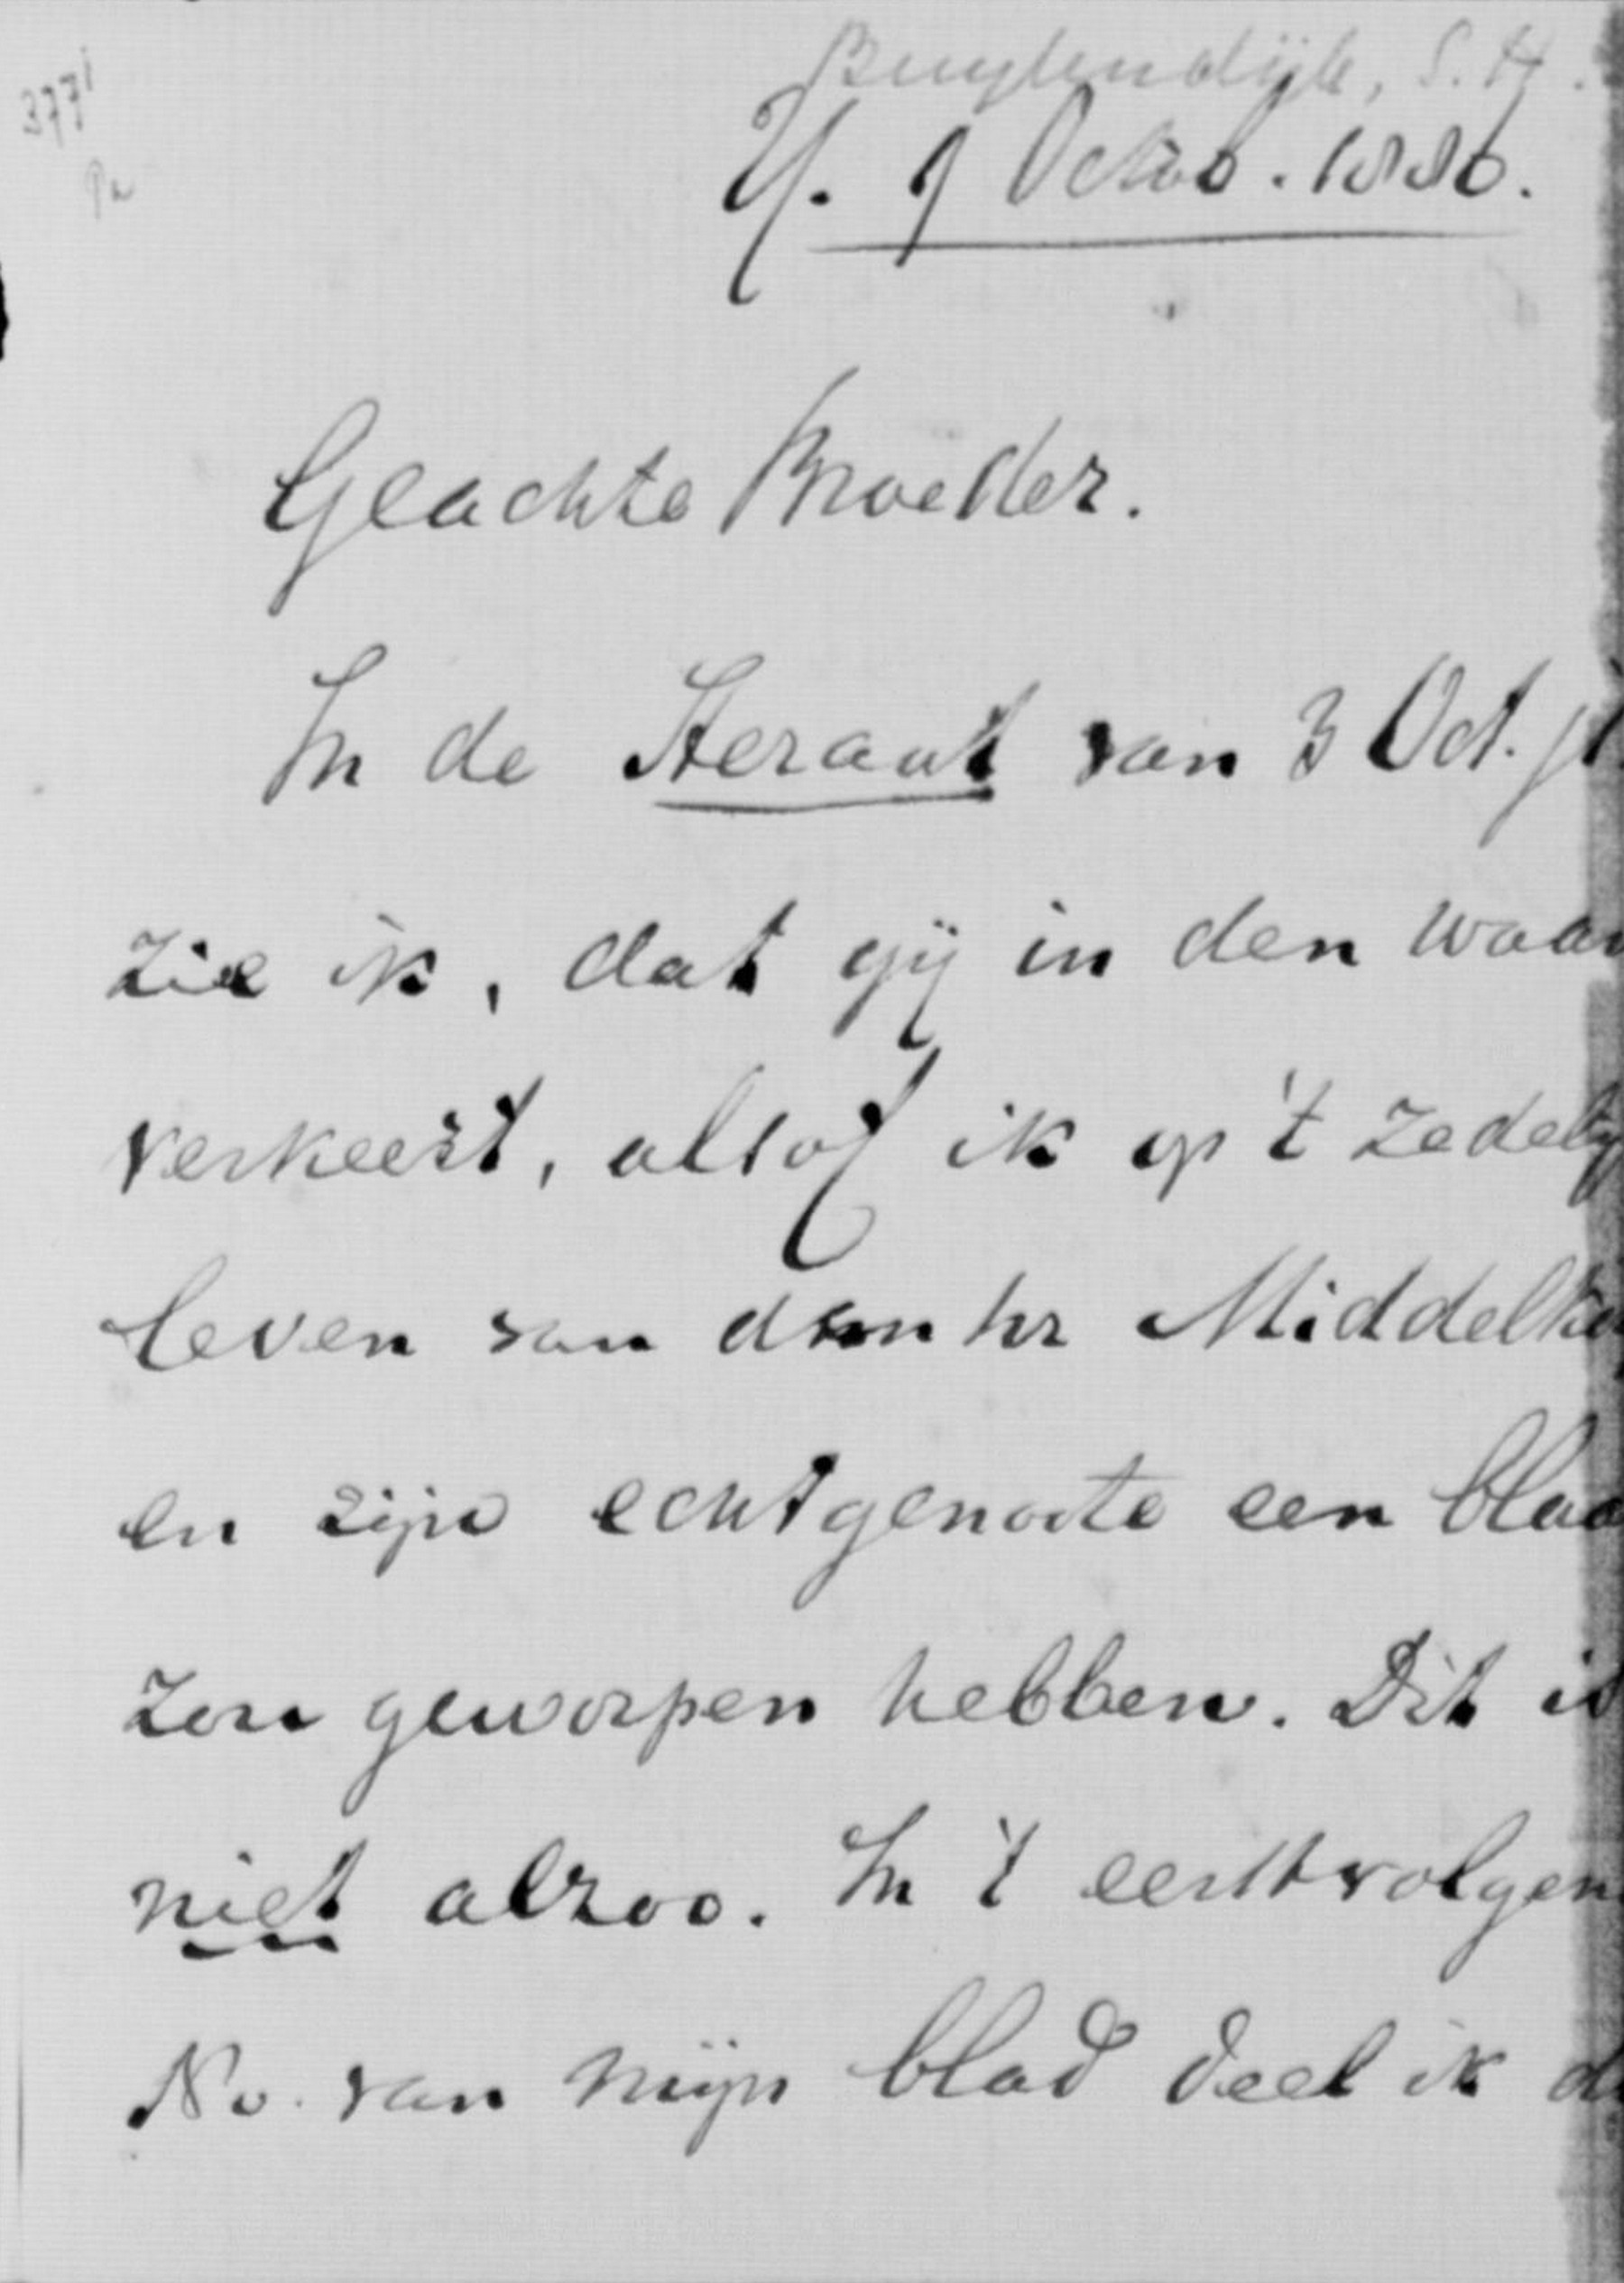 3771
Buytendijk, S. H.
U. 9 Octob. 1886.
Geachte Broeder.
In de Heraut van 3 Oct. jl
zie ik, dat gij in den waan
verkeert, alsof ik op 't zedelij
leven van den hr Middelko
en zijn echtgenoote een blaa
zou geworpen hebben. Dit is
niet alzoo. In 't eerstvolgen
No. van mijn blad deel ik d